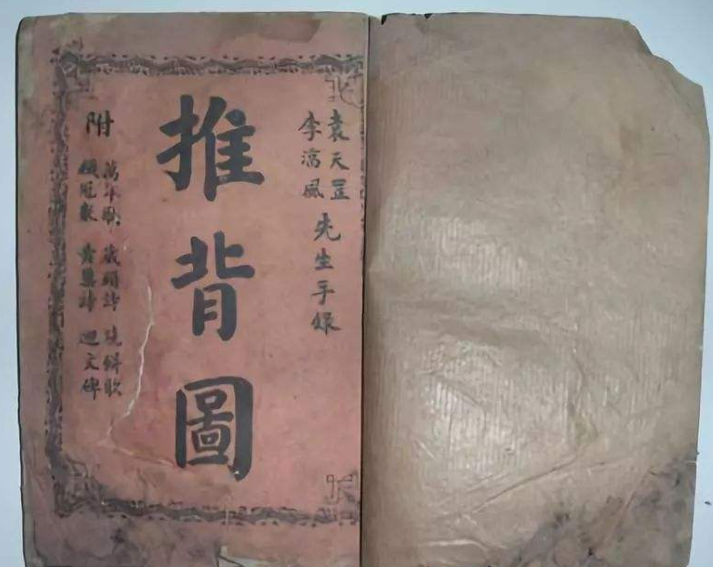 袁天罡
李淳風
先生手錄
推背圖
附
萬年歌 藏頭詩 燒餅歌
鐵冠 黃蘗詩 迴文碑